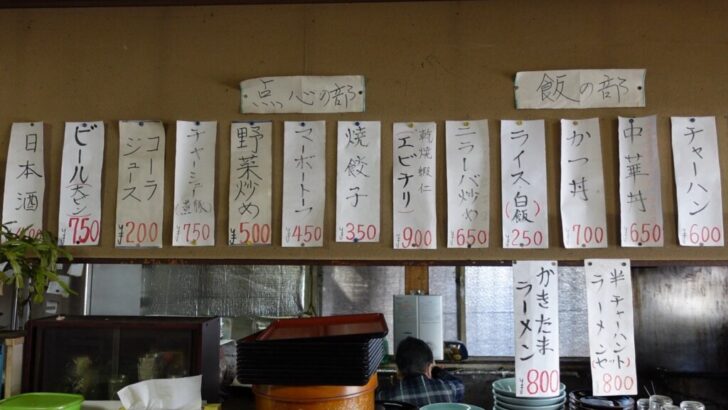 飯の部
点心の部
チャーハン
¥600
中華丼
¥650
かつ丼
¥700
ライス(白飯)
¥250
ニラレバ炒め
¥650
乾焼蝦仁
(エビチリ)
¥900
焼餃子
¥350
マーボートーフ
¥450
野菜炒め
¥500
チャーシュー(煮豚)
¥750
コーラ
ジュース
¥200
ビール(大ビン)
¥750
日本酒
かきたま
ラーメン
800
半チャーハン
ラーメン(セット)
¥800